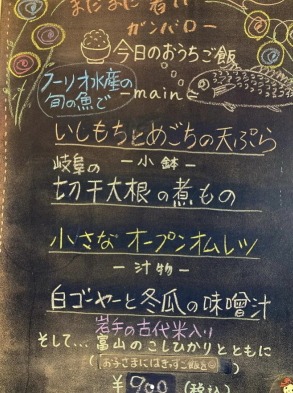 まだまだ暑い
ガンバロー
今日のおうちご飯
フーリオ水産の
旬の魚で
main
いしもちとめごちの天ぷら
－小鉢－
岐阜の
切干大根の煮もの
小さなオープンオムレツ
－汁物－
白ゴーヤーと冬瓜の味噌汁
岩手の古代米入り
そして… 富山のこしひかりとともに
(お子さまにはきずご飯を)
¥900 (税込)